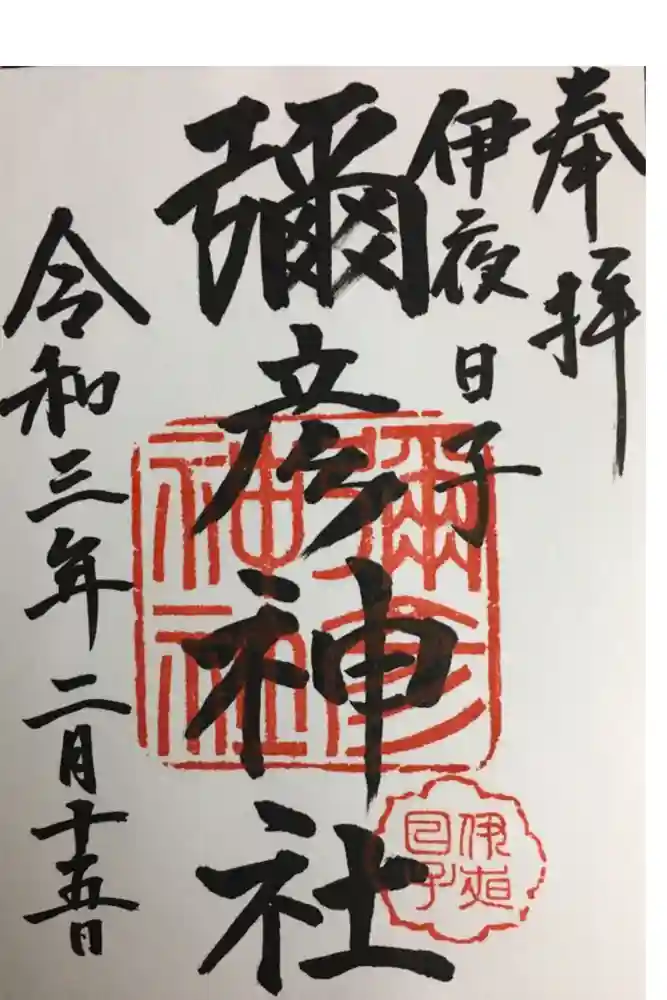 奉拝
伊夜日子
彌彦神社
令和三年二月十五日
彌彦神社
伊夜日子